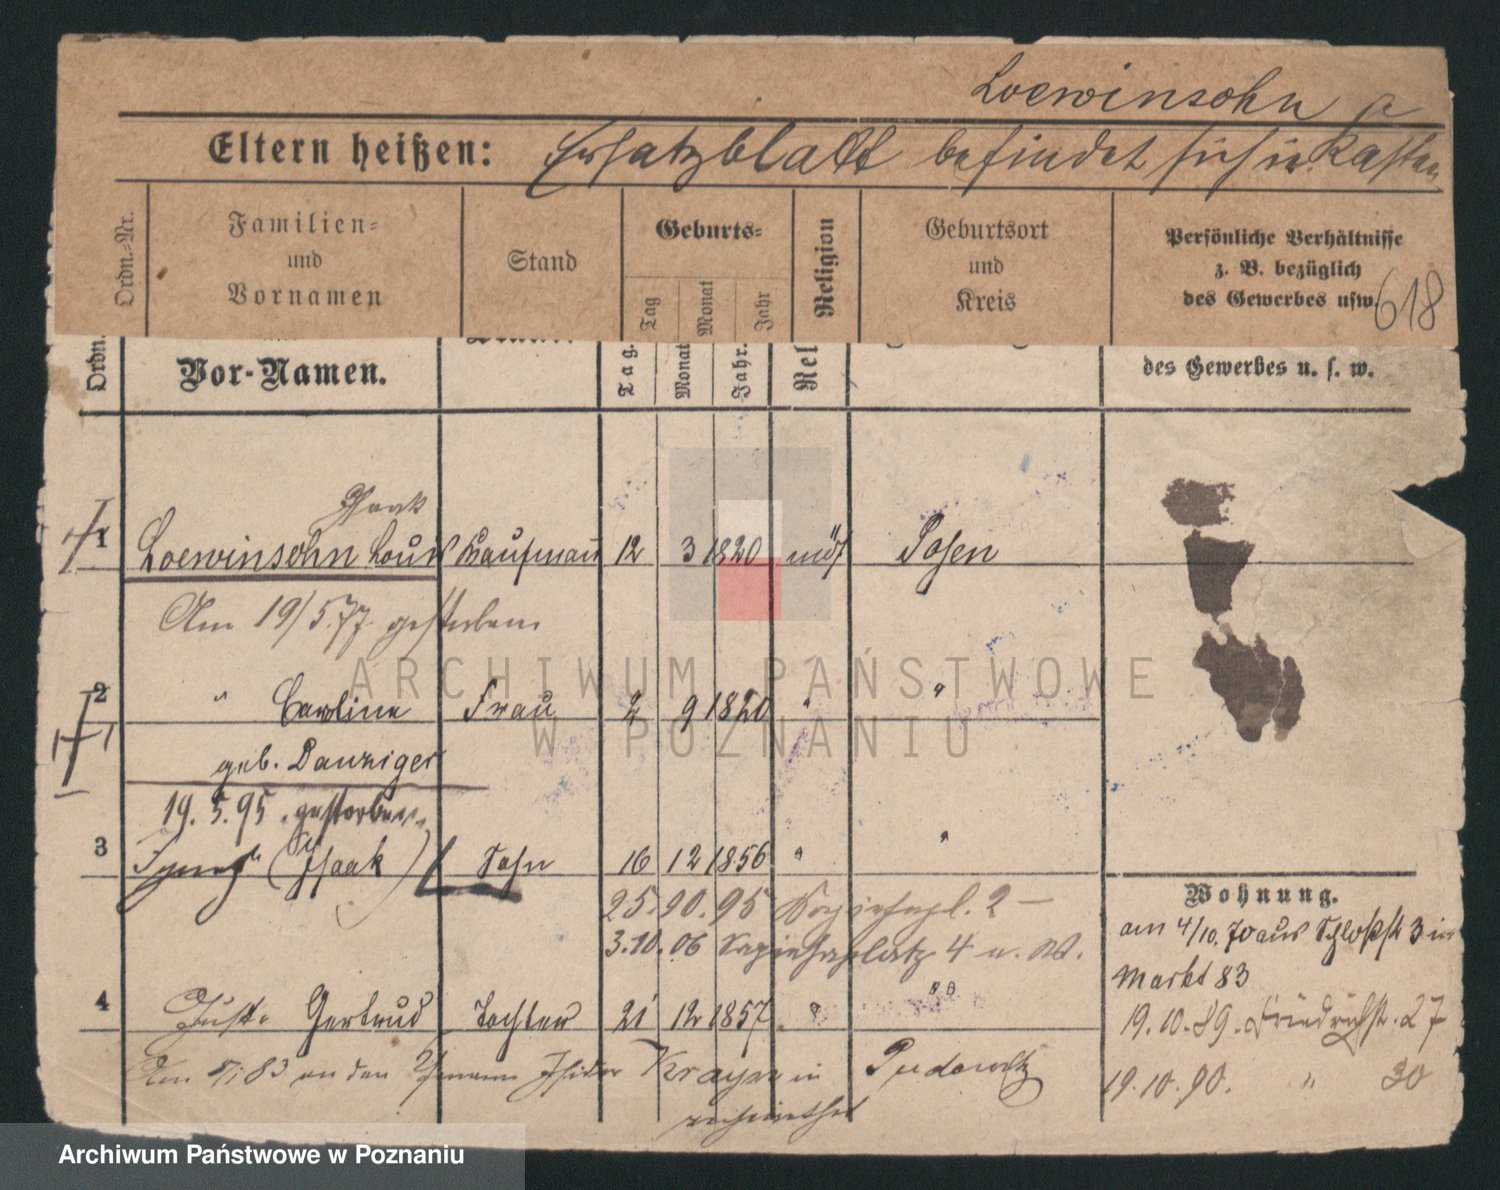 Loewinsohn
Eltern heißen: Ersatzblatt befindet sich im Kasten
Ordn.-Nr.
Familien-
und
Vornamen
Stand
Geburts-
Tag
Monat
Jahr
Religion
Geburtsort
und
Kreis
Persönliche Verhältnisse
z. B. bezüglich
des Gewerbes usw.
618
Ordn.
Vor-Namen.
Tag.
Monat
Jahr.
Rel
des Gewerbes u. s. w.
Isaak
1 Loewinsohn Louis Kaufmann 12 3 1820 müs Posen
Am 19/5.77 gestorben
2 " Caroline Frau 2 9 1820 " "
geb. Danziger
19. 5. 95 gestorben
3 (Isaak) Sohn 16 12 1856 " "
25. 10. 95 Sapiehapl. 2 —
3. 10. 06 Sapiehaplatz 4 u. W.
4 Gertrud Tochter 21 12 1857 " "
83 an den Isidor Krayn in Pudewitz
verheirathet
Wohnung.
am 4/10. 70 aus Schloßstr 3 in
Markt 83
19. 10. 89. Friedrichstr. 27
19. 10. 90. " 30
ARCHIWUM PAŃSTWOWE
W POZNANIU
Archiwum Państwowe w Poznaniu